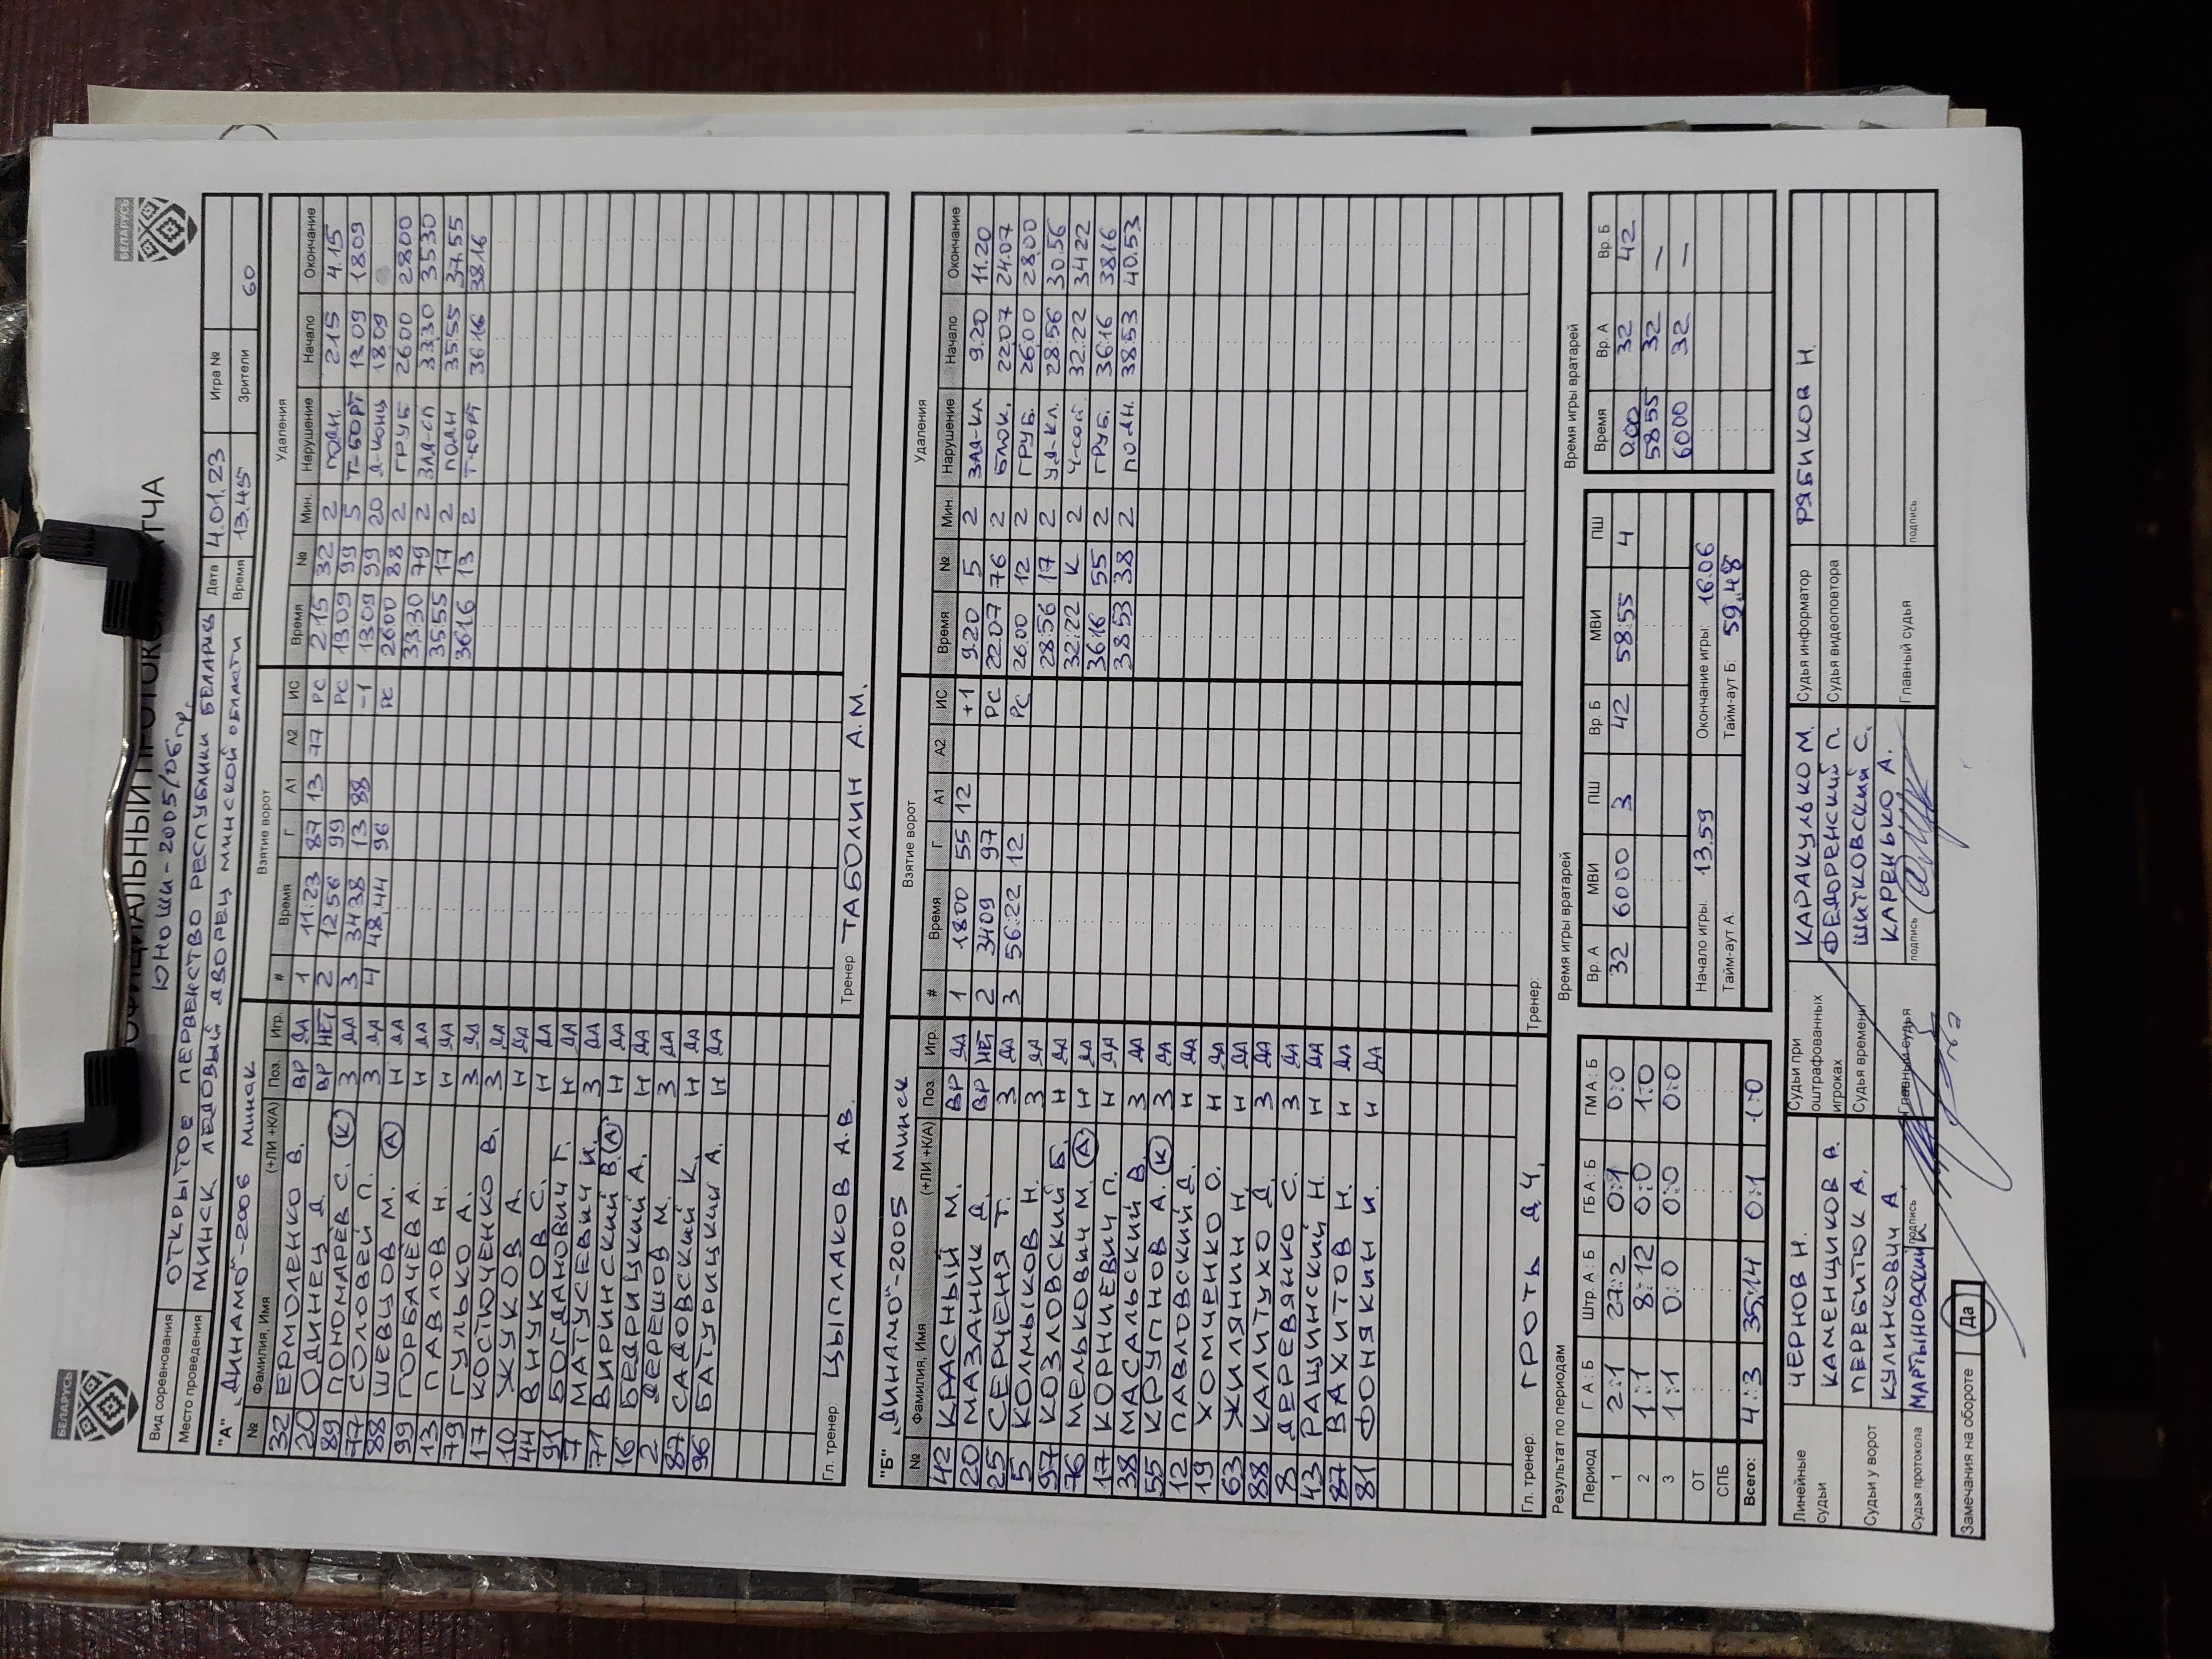 БЕЛАРУСЬ
БЕЛАРУСЬ
ОФИЦИАЛЬНЫЙ ПРОТОКОЛ МАТЧА
ЮНОШИ-2005/06г.р.
Вид соревнования ОТКРЫТОЕ ПЕРВЕНСТВО РЕСПУБЛИКИ БЕЛАРУСЬ Дата 4.01.23 Игра №
Место проведения МИНСК ЛЕДОВЫЙ ДВОРЕЦ МИНСКОЙ ОБЛАСТИ Время 13.45 Зрители 60
"А" „ДИНАМО"-2006 МИНСК Взятие ворот Удаления
№ Фамилия, Имя (+ЛИ +К/А) Поз. Игр. # Время Г А1 А2 ИС Время № Мин. Нарушение Начало Окончание
32 ЕРМОЛЕНКО В. ВР ДА 1 11:23 87 13 77 РС 2:15 32 2 ПОДН. 2:15 4.15
20 ОДИНЕЦ Д. ВР НЕТ 2 12 56 99 РС 13:09 99 5 Т-БОРТ 13 09 18.09
89 ПОНОМАРЁВ С. (К) З ДА 3 34 38 13 88 -1 13:09 99 20 Д-КОНЦ 18:09
77 СОЛОВЕЙ П. З ДА 4 48.44 96 РС 26:00 88 2 ГРУБ 26:00 28:00
88 ШЕВЦОВ М. (А) Н ДА 33:30 79 2 ЗАД-СП 33:30 35:30
99 ГОРБАЧЁВ А. Н ДА 35:55 17 2 ПОДН 35:55 37:55
13 ПАВЛОВ Н. Н ДА 36:16 13 2 Т-БОРТ 36:16 38:16
79 ГУЛЬКО А. З ДА
17 КОСТЮЧЕНКО В. З ДА
10 ЖУКОВ А. Н ДА
44 ВНУКОВ С. Н ДА
91 БОГДАНОВИЧ Г. Н ДА
7 МАТУСЕВИЧ И. З ДА
71 ВИРИНСКИЙ В. (А) Н ДА
16 БЕДРИЦКИЙ А. Н ДА
2 ДЕРЕШОВ М. З ДА
87 САДОВСКИЙ К. Н ДА
96 БАТУРИЦКИЙ А. Н ДА
Гл. тренер: ЦЫПЛАКОВ А.В. Тренер ТАБОЛИН А.М.
"Б" „ДИНАМО"-2005 МИНСК Взятие ворот Удаления
№ Фамилия, Имя (+ЛИ +К/А) Поз. Игр. # Время Г А1 А2 ИС Время № Мин. Нарушение Начало Окончание
42 КРАСНЫЙ М. ВР ДА 1 18:00 55 12 +1 9.20 5 2 ЗАД-КЛ. 9.20 11.20
20 МАЗАНИК Д. ВР НЕТ 2 34:09 97 РС 22:07 76 2 БЛОК. 22:07 24.07
25 СЕРЧЕНЯ Т. З ДА 3 56:22 12 РС 26:00 12 2 ГРУБ. 26:00 28.00
5 КОЛМЫКОВ Н. З ДА 28:56 17 2 УД-КЛ. 28:56 30:56
97 КОЗЛОВСКИЙ Б. Н ДА 32:22 К 2 Ч-СОСТ 32:22 34:22
76 МЕЛЬКОВИЧ М. (А) Н ДА 36:16 55 2 ГРУБ. 36:16 38:16
17 КОРНИЕВИЧ П. Н ДА 38:53 38 2 ПОДН. 38:53 40.53
38 МАСАЛЬСКИЙ В. З ДА
55 КРУПНОВ А. (К) З ДА
12 ПАВЛОВСКИЙ Д. Н ДА
19 ХОМЧЕНКО О. Н ДА
63 ЖИЛЯНИН Н. Н ДА
88 КАЛИТУХО Д. З ДА
8 ДЕРЕВЯНКО С. З ДА
43 РАЩИНСКИЙ Н. Н ДА
87 ВАХИТОВ Н. Н ДА
81 ФОНЯКЫН И. Н ДА
Гл. тренер: ГРОТЬ Д.Ч. Тренер:
Результат по периодам Время игры вратарей Время игры вратарей
Период Г А : Б Штр. А : Б ГБ А : Б ГМ А : Б Вр. А МВИ ПШ Вр. Б МВИ ПШ Время Вр. А Вр. Б
1 2:1 27:2 0:1 0:0 32 60:00 3 42 58:55 4 0:00 32 42
2 1:1 8:12 0:0 1:0 58:55 32 —
3 1:1 0:0 0:0 0:0 60:00 32 —
ОТ Начало игры: 13.59 Окончание игры: 16:06
СПБ Тайм-аут А: Тайм-аут Б: 59.48
Всего: 4:3 35:14 0:1 1:0
Линейные судьи ЧЕРНОВ Н. Судьи при оштрафованных игроках КАРАКУЛЬКО М. Судья информатор РЯБИКОВ Н.
КАМЕНЩИКОВ В. ФЕДОРЕНСКИЙ П. Судья видеоповтора
Судьи у ворот ПЕРБИТЮК А. Судья времени ШИТКОВСКИЙ С.
КУЛИНКОВИЧ А. КАРЕНЬКО А.
Судья протокола МАРТЫНОВСКИЙ подпись Главный судья подпись Главный судья подпись
Замечания на обороте Да